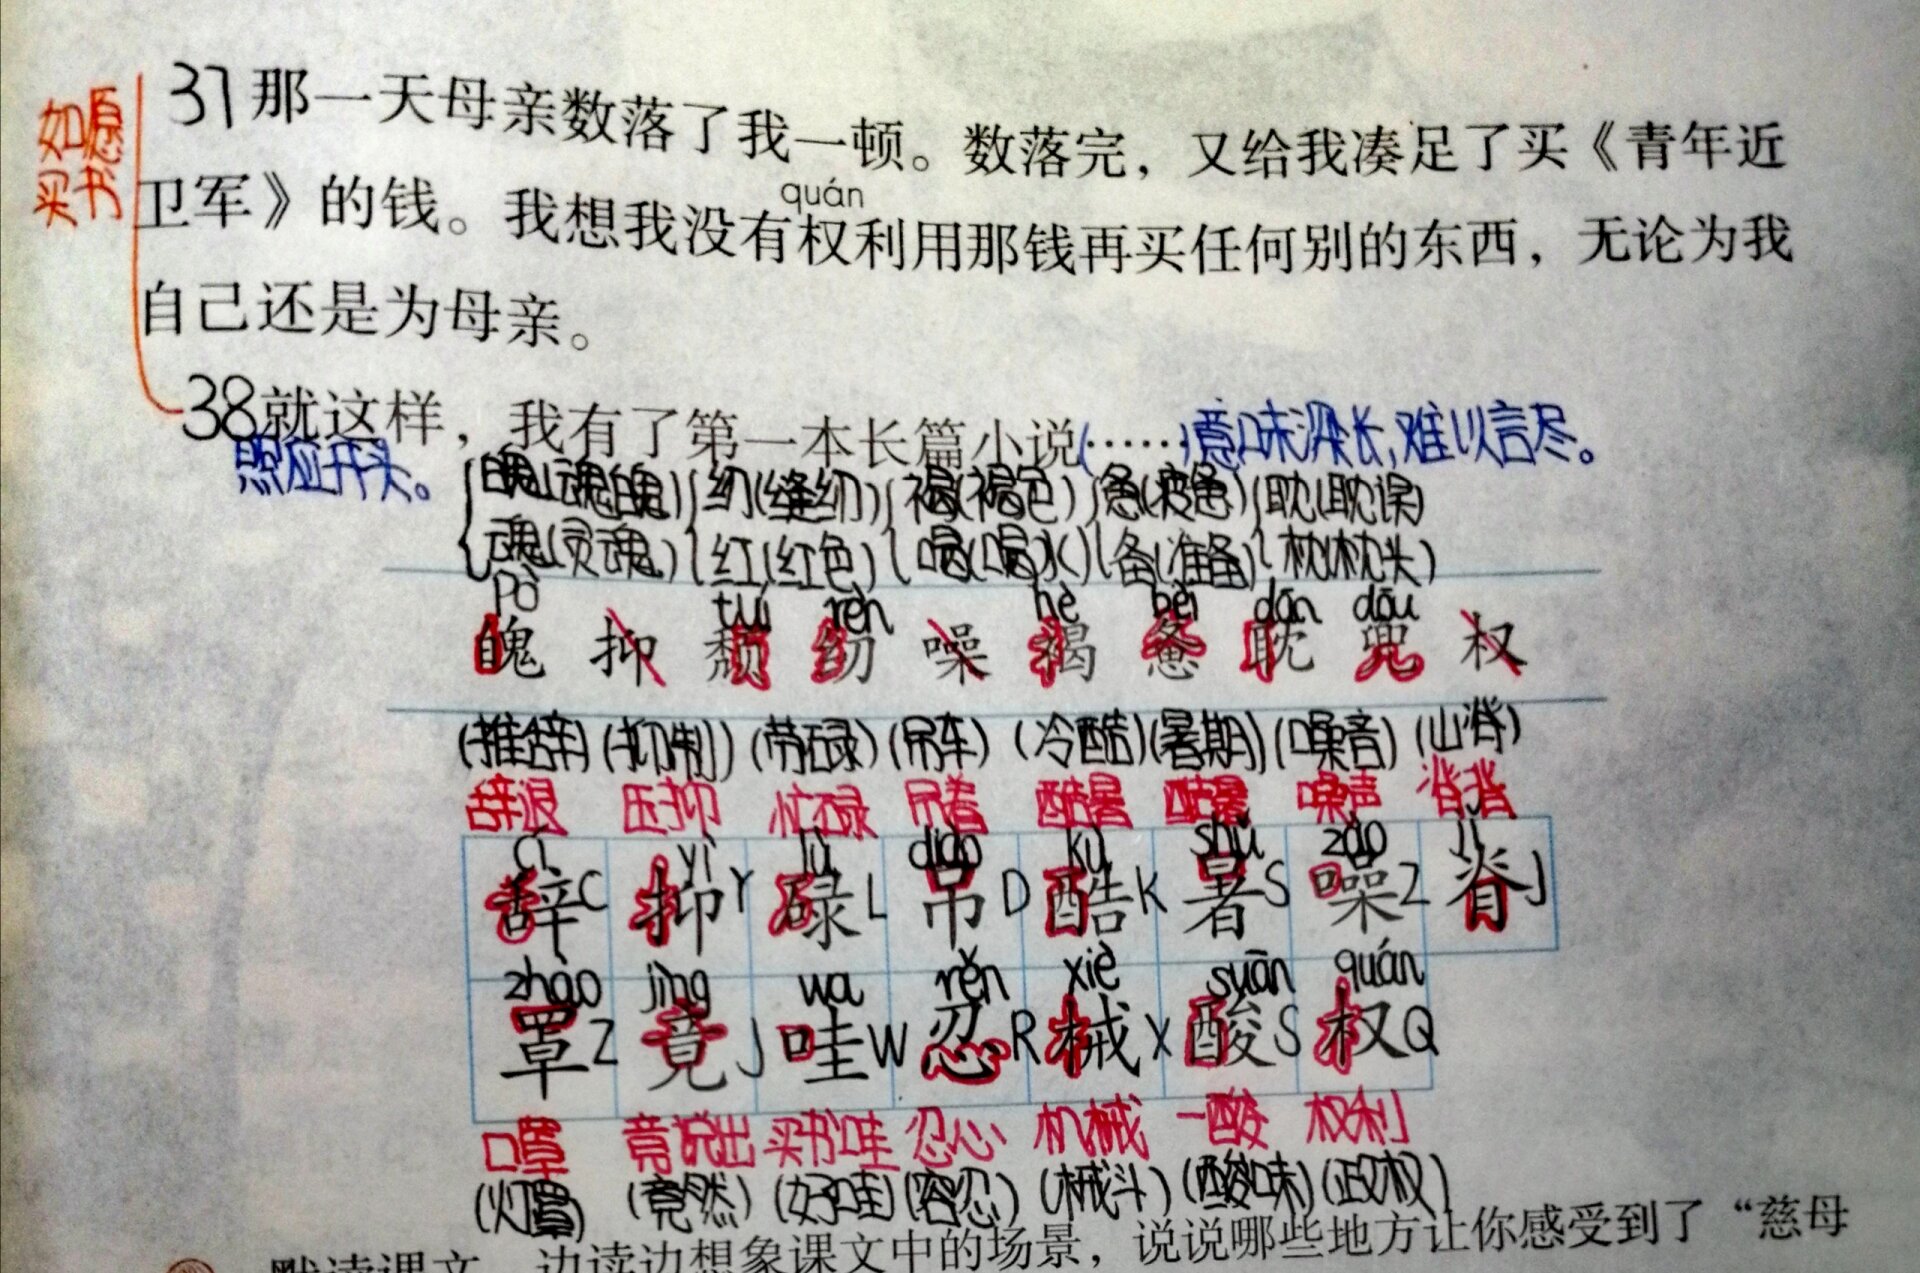 37那一天母亲数落了我一顿。数落完，又给我凑足了买《青年近
如愿
买书
quán
卫军》的钱。我想我没有权利用那钱再买任何别的东西，无论为我
自己还是为母亲。
38就这样，我有了第一本长篇小说……(……)意味深长,难以言尽。
照应开头。
魄(魂魄) 纫(缝纫) 褐(褐色) 惫(疲惫) 耽(耽误)
魂(灵魂) 红(红色) 喝(喝水) 备(准备) 枕(枕头)
pò tuí rèn hè bèi dān dōu
魄 抑 颓 纫 噪 褐 惫 耽 兜 权
(推辞) (抑制) (劳碌) (吊车) (冷酷) (暑期) (噪音) (山脊)
辞退 压抑 忙碌 吊着 酷暑 酷暑 噪声 脊背
cí yì lù diào kù shǔ zào jǐ
辞C 抑Y 碌L 吊D 酷K 暑S 噪Z 脊J
zhào jìng wa rěn xiè suān quán
罩Z 竟J 哇W 忍R 械X 酸S 权Q
口罩 竟说出 买书哇 忍心 机械 一酸 权利
(灯罩) (竟然) (好哇) (容忍) (械斗) (酸味) (政权)
默读课文，边读边想象课文中的场景，说说哪些地方让你感受到了“慈母